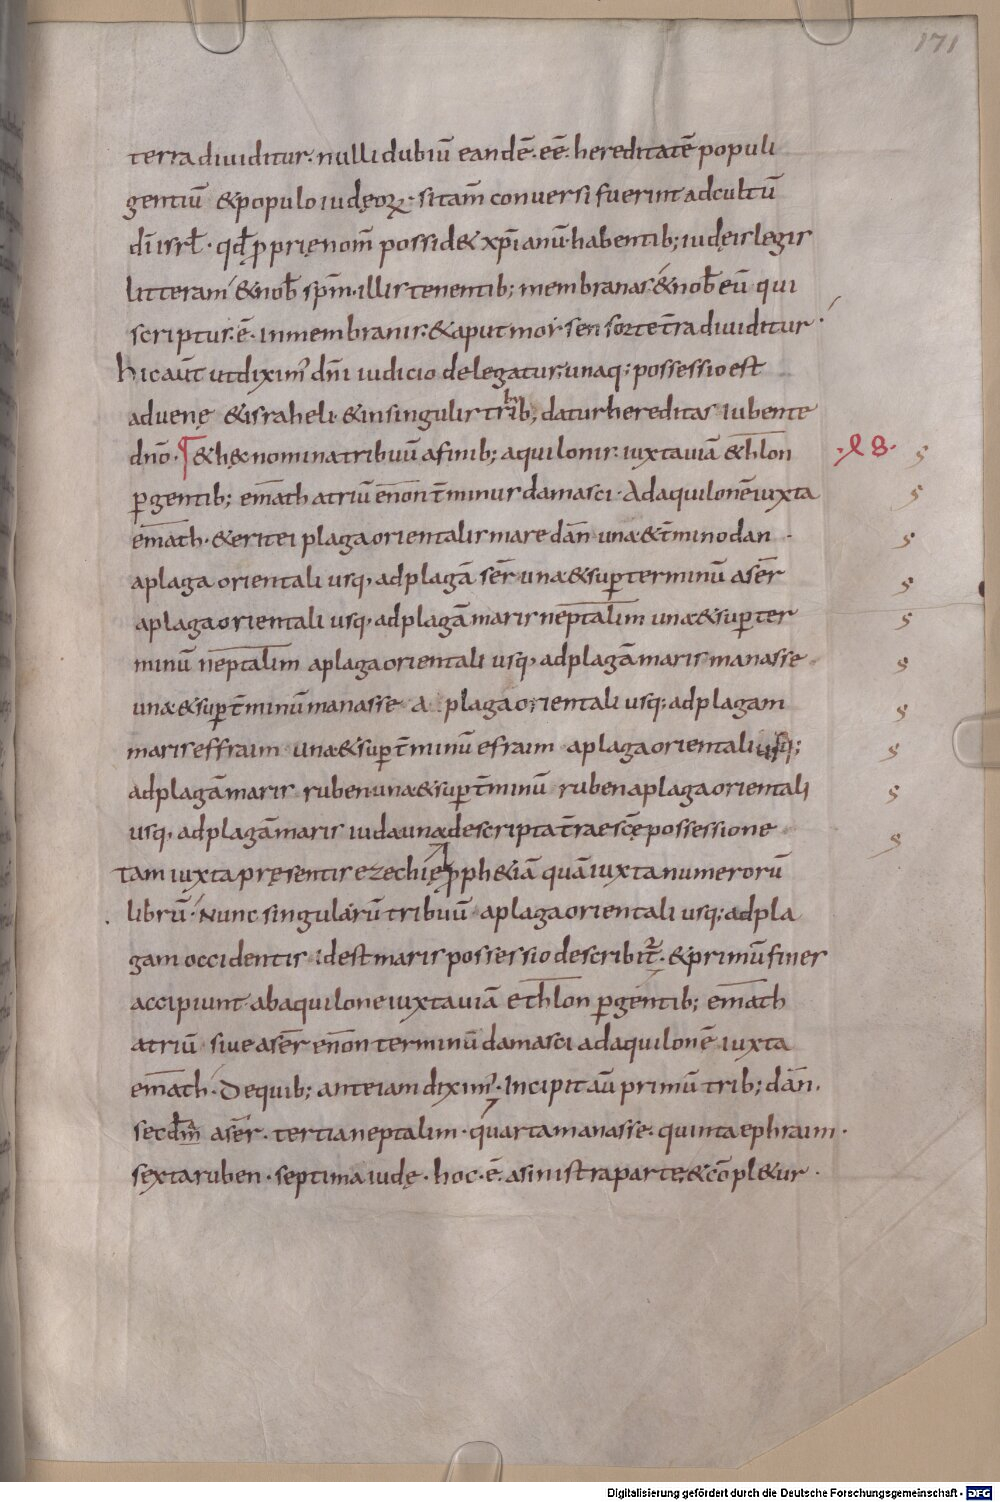 171
terra diuiditur. nulli dubiū eandē. eē. hereditatē populi
gentiū & populo iudęoꝝ. si tam̄ conuersi fuerint ad cultū
dī isrl̄. qd̄ ꝓprię nom̄ possid& xp̄ianū. habentib; iudęis legis
litteram & nob̄ sp̄m. illis tenentib; membranas & nob̄ eū qui
scriptus. ē. in membranis. & aput mosen sorte t̄ra diuiditur.
hic aūt ut diximꝰ dn̄i iudicio delegatur. unaq; possessio est
aduenę & israheli. & in singulis trib; datur hereditas iubente
dn̄o. ¶ & hęc nomina tribuū a finib; aquilonis. iuxta uiā & hlon
ꝑgentib; emath atriū enon t̄minus damasci. Ad aquilonē iuxta
emath. & erit ei plaga orientalis mare dan una & t̄mino dan.
a plaga orientali usq; ad plagā ser una & suꝑ terminū aser
a plaga orientali usq; ad plagā maris neptalim una & suꝑ ter
minū neptalim a plaga orientali usq; ad plagā maris manasse
una & suꝑ t̄minū manasse a plaga orientali usq; ad plagam
maris effraim una & suꝑ t̄minū efraim a plaga orientali usq;
ad plagā maris ruben una & suꝑ t̄minū ruben a plaga orientali
usq; ad plagā maris iuda una descripta t̄rae scę possessione
tam iuxta pręsentis ezechię ꝓph&iā quā iuxta numerorū
librū. Nunc singularū tribuū a plaga orientali usq; ad pla
gam occidentis idest maris possessio describit̄. & primū fines
accipiunt ab aquilone iuxta uiā ethlon ꝑgentib; emath
atriū siue aser enon terminū damasci ad aquilonē iuxta
emath. De quib; ante iam diximꝰ. Incipit aū primū trib; dan.
secdm̄ aser. tertia neptalim. quarta manasse. quinta ephraim.
sexta ruben. septima iudę. hoc. ē. a sinistra parte; & cōpl&ur.
Digitalisierung gefördert durch die Deutsche Forschungsgemeinschaft - DFG